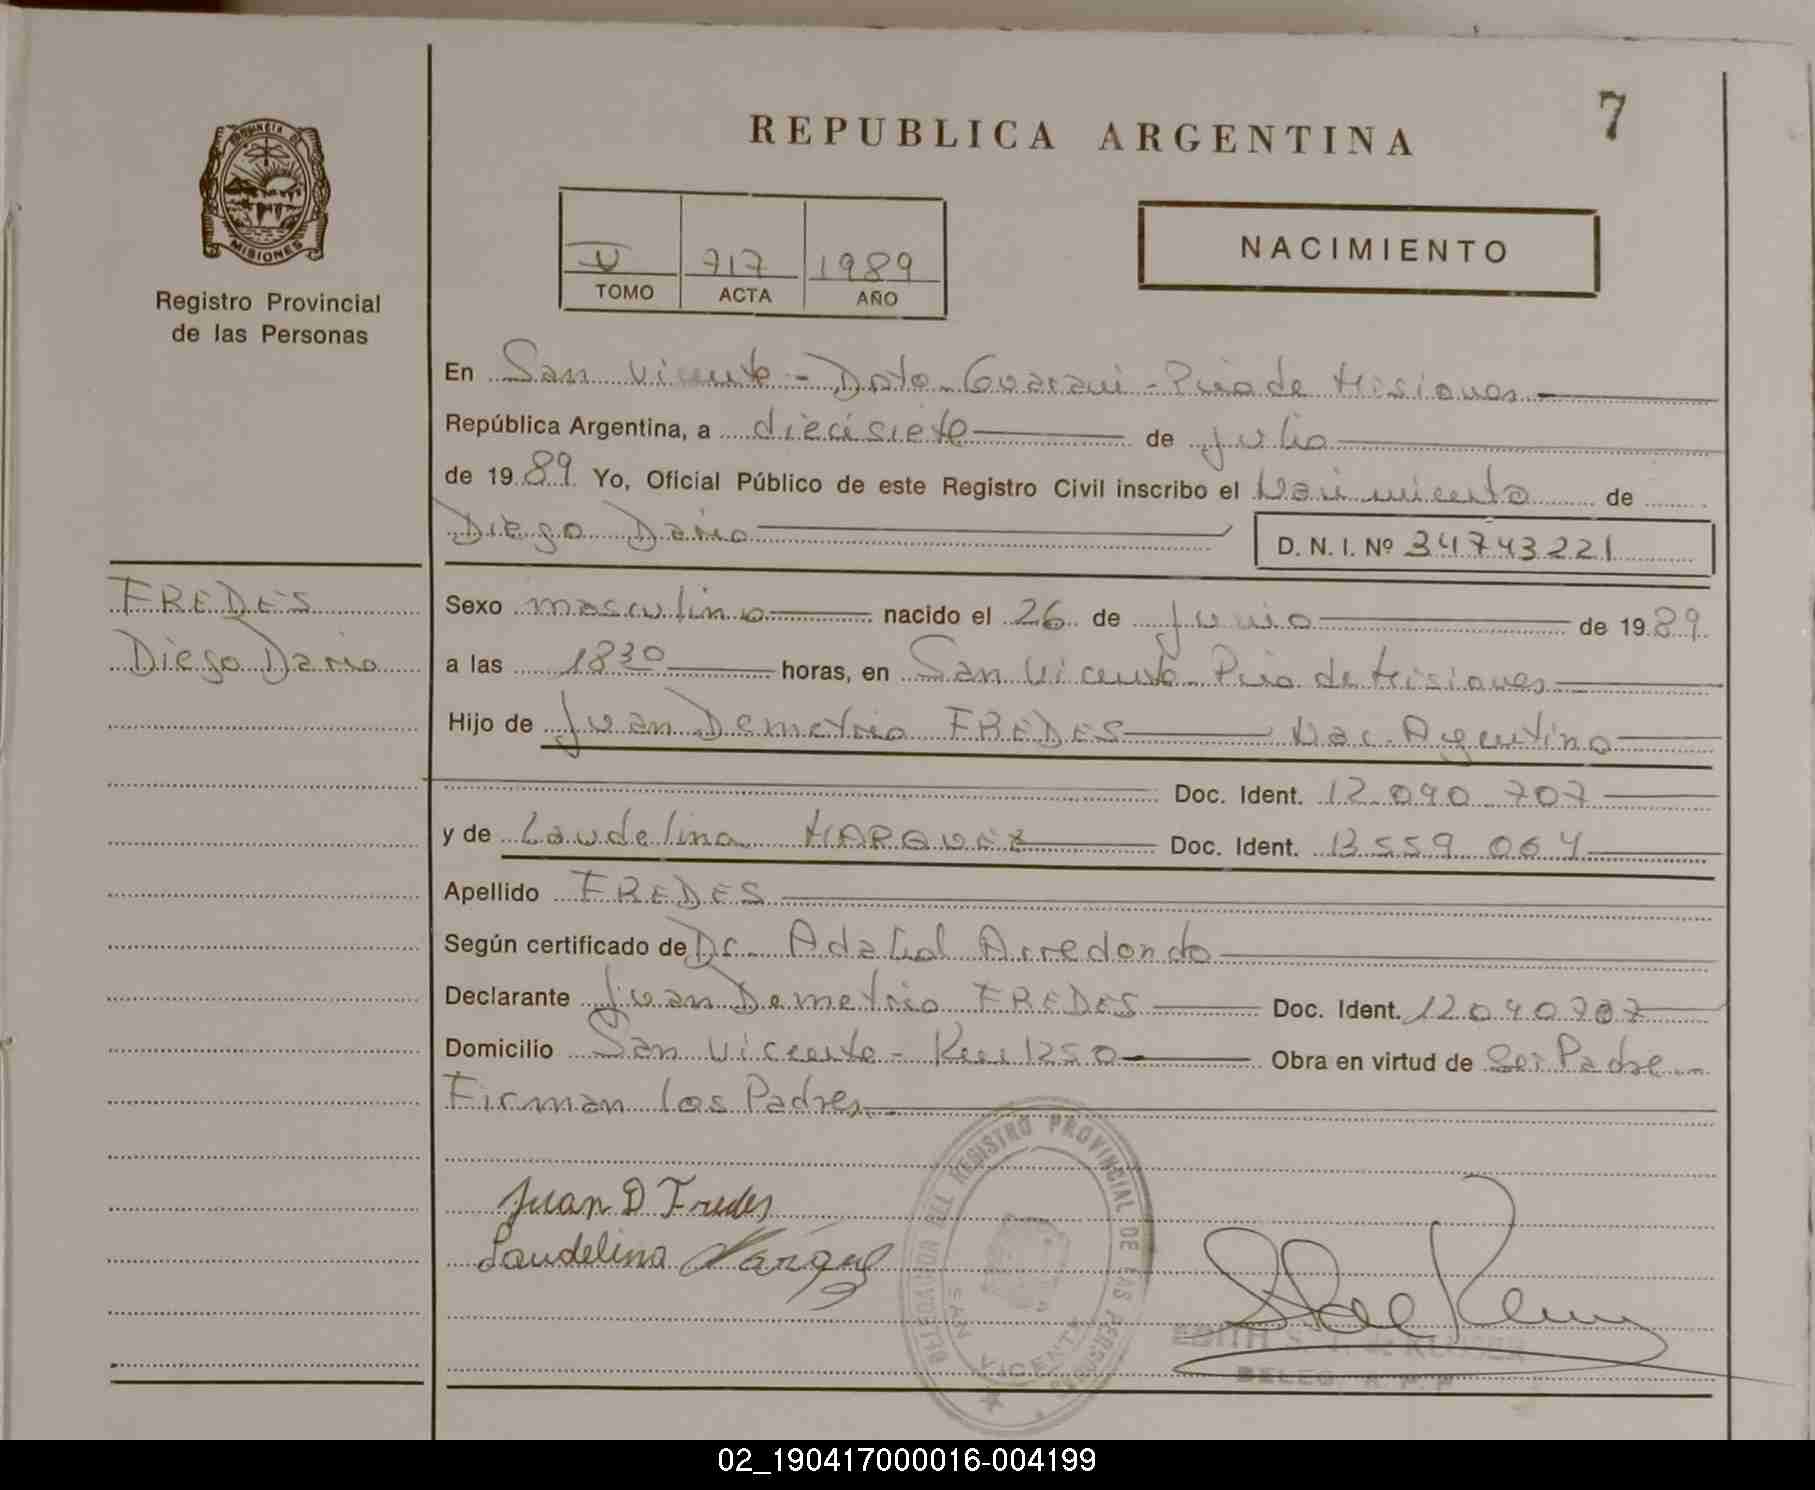 7
REPUBLICA ARGENTINA
PROVINCIA DE
MISIONES
Registro Provincial
de las Personas
V 717 1989
TOMO ACTA AÑO
NACIMIENTO
En San Vicente - Dpto Guarani - Pcia de Misiones
República Argentina, a diecisiete de julio
de 1989 Yo, Oficial Público de este Registro Civil inscribo el Nacimiento de
Diego Dario D. N. I. Nº 34743221
FREDES
Diego Dario
Sexo masculino nacido el 26 de Junio de 1989
a las 1830 horas, en San Vicente Pcia de Misiones
Hijo de Juan Demetrio FREDES Nac. Argentino
Doc. Ident. 12.040.707
y de Laudelina MARQUEZ Doc. Ident. 13.559.064
Apellido FREDES
Según certificado de Dr. Adalid Arredondo
Declarante Juan Demetrio FREDES Doc. Ident. 12040707
Domicilio San Vicente - Km 1250 Obra en virtud de Ser Padre
Firman los Padres
Juan D Fredes
Laudelina Marquez
DELEGACION DEL REGISTRO PROVINCIAL DE LAS PERSONAS
SAN VICENTE
EDITH
DELEG. R. P. P.
02_190417000016-004199